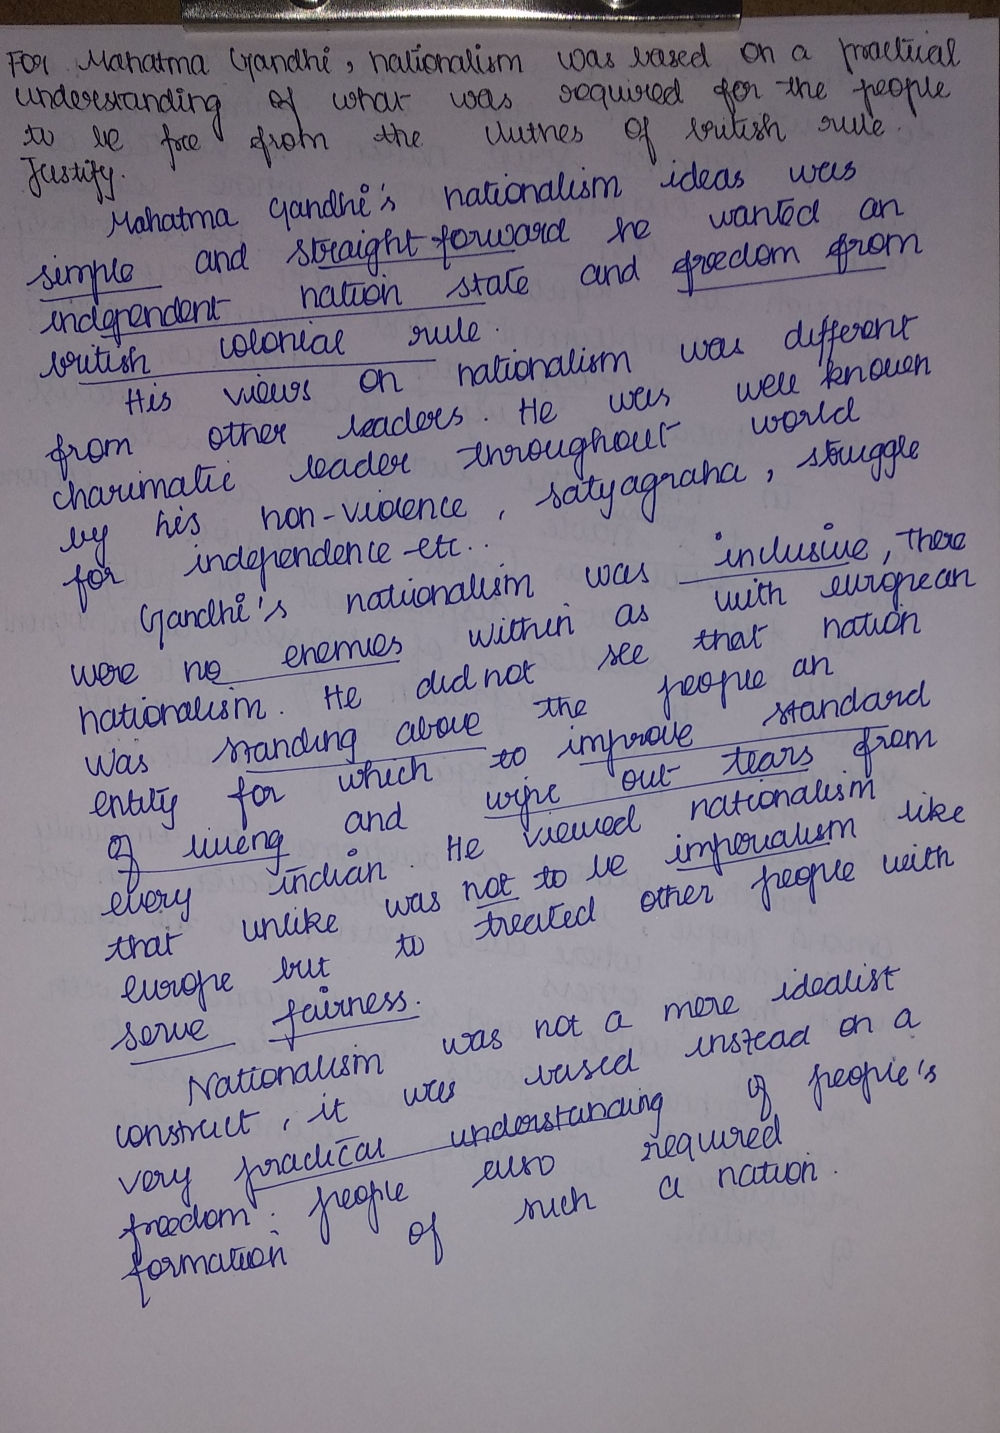 For Mahatma Gandhi, nationalism was based on a practical
understanding of what was required for the people
to be free from the clutches of british rule.
Justify.
Mahatma Gandhi's nationalism ideas was
simple and straight forward he wanted an
independent nation state and freedom from
british colonial rule.
His views on nationalism was different
from other leaders. He was well known
charimatic leader throughout world
by his non-violence, satyagraha, struggle
for independence etc..
Gandhi's nationalism was inclusive, there
were no enemies within as with european
nationalism. He did not see that nation
was standing above the people an
entity for which to improve standard
of living and wipe out tears from
every indian. He viewed nationalism
that unlike was not to be imperialism like
europe but to treated other people with
serve fairness.
Nationalism was not a mere idealist
construct, it was based instead on a
very practical understanding of people's
freedom. people also required
formation of such a nation.